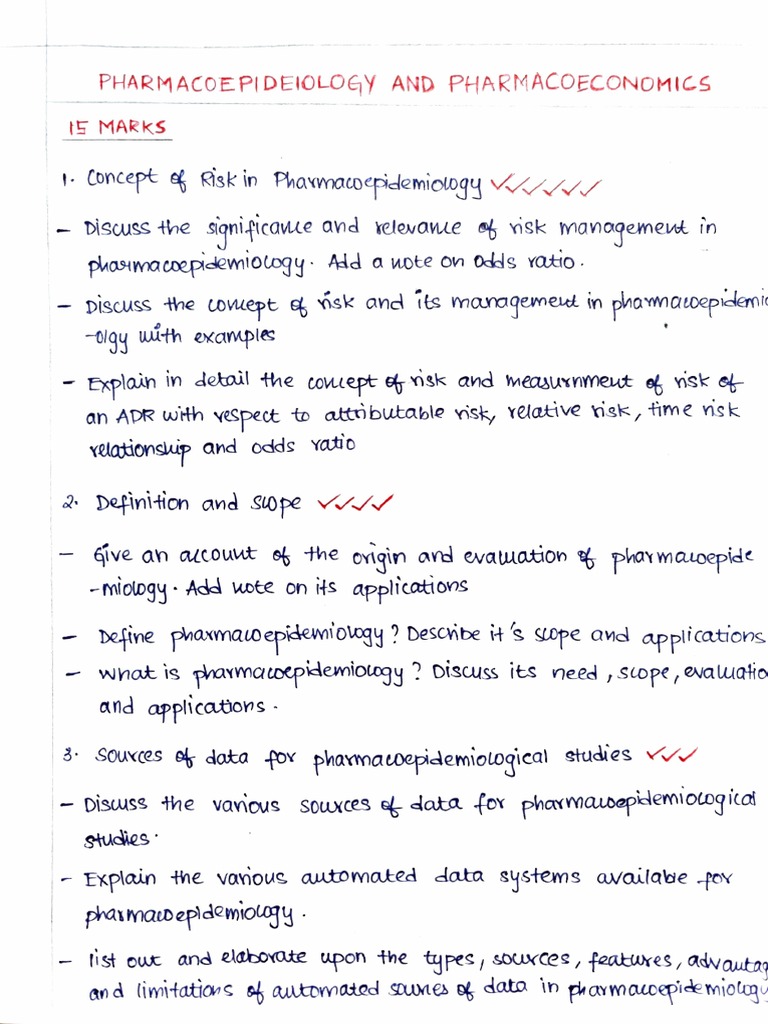 PHARMACOEPIDEIOLOGY AND PHARMACOECONOMICS
15 MARKS
1. Concept of Risk in Pharmacoepidemiology ✓✓✓✓✓✓
- Discuss the significance and relevance of risk management in
pharmacoepidemiology. Add a note on odds ratio.
- Discuss the concept of risk and its management in pharmacoepidemio
-ology with examples
- Explain in detail the concept of risk and measurnment of risk of
an ADR with respect to attributable risk, relative risk, time risk
relationship and odds ratio
2. Definition and scope ✓✓✓✓
- Give an account of the origin and evaluation of pharmacoepide
-miology. Add note on its applications
- Define pharmacoepidemiology? Describe it's scope and applications
- What is pharmacoepidemiology? Discuss its need, scope, evaluatio
and applications.
3. Sources of data for pharmacoepidemiological studies ✓✓✓
- Discuss the various sources of data for pharmacoepidemiological
studies.
- Explain the various automated data systems available for
pharmacoepidemiology.
- list out and elaborate upon the types, sources, features, advantag
and limitations of automated sources of data in pharmacoepidemiology